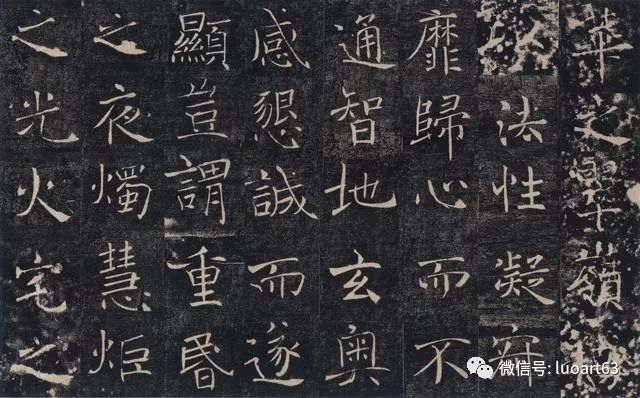 華文嶺
法性凝寂
靡歸心而不
通智地玄奥
感懇誠而遂
顯豈謂重昏
之夜燭慧炬
之光火宅之
微信号: luoart63